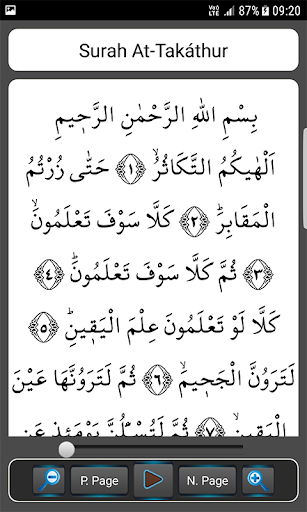 87% 09:20
Surah At-Takáthur
بِسْمِ اللهِ الرَّحْمٰنِ الرَّحِيمِ
اَلْهٰيكُمُ التَّكَاثُرُۙ ﴿١﴾ حَتّٰى زُرْتُمُ
الْمَقَابِرَۜ ﴿٢﴾ كَلَّا سَوْفَ تَعْلَمُونَۙ
﴿٣﴾ ثُمَّ كَلَّا سَوْفَ تَعْلَمُونَۜ ﴿٤﴾
كَلَّا لَوْ تَعْلَمُونَ عِلْمَ الْيَقِينِۜ ﴿٥﴾
لَتَرَوُنَّ الْجَحِيمَۙ ﴿٦﴾ ثُمَّ لَتَرَوُنَّهَا عَيْنَ
الْيَقِينِۙ ﴿٧﴾ ثُمَّ لَتُسْـَٔلُنَّ يَوْمَئِذٍ عَنِ
P. Page
N. Page